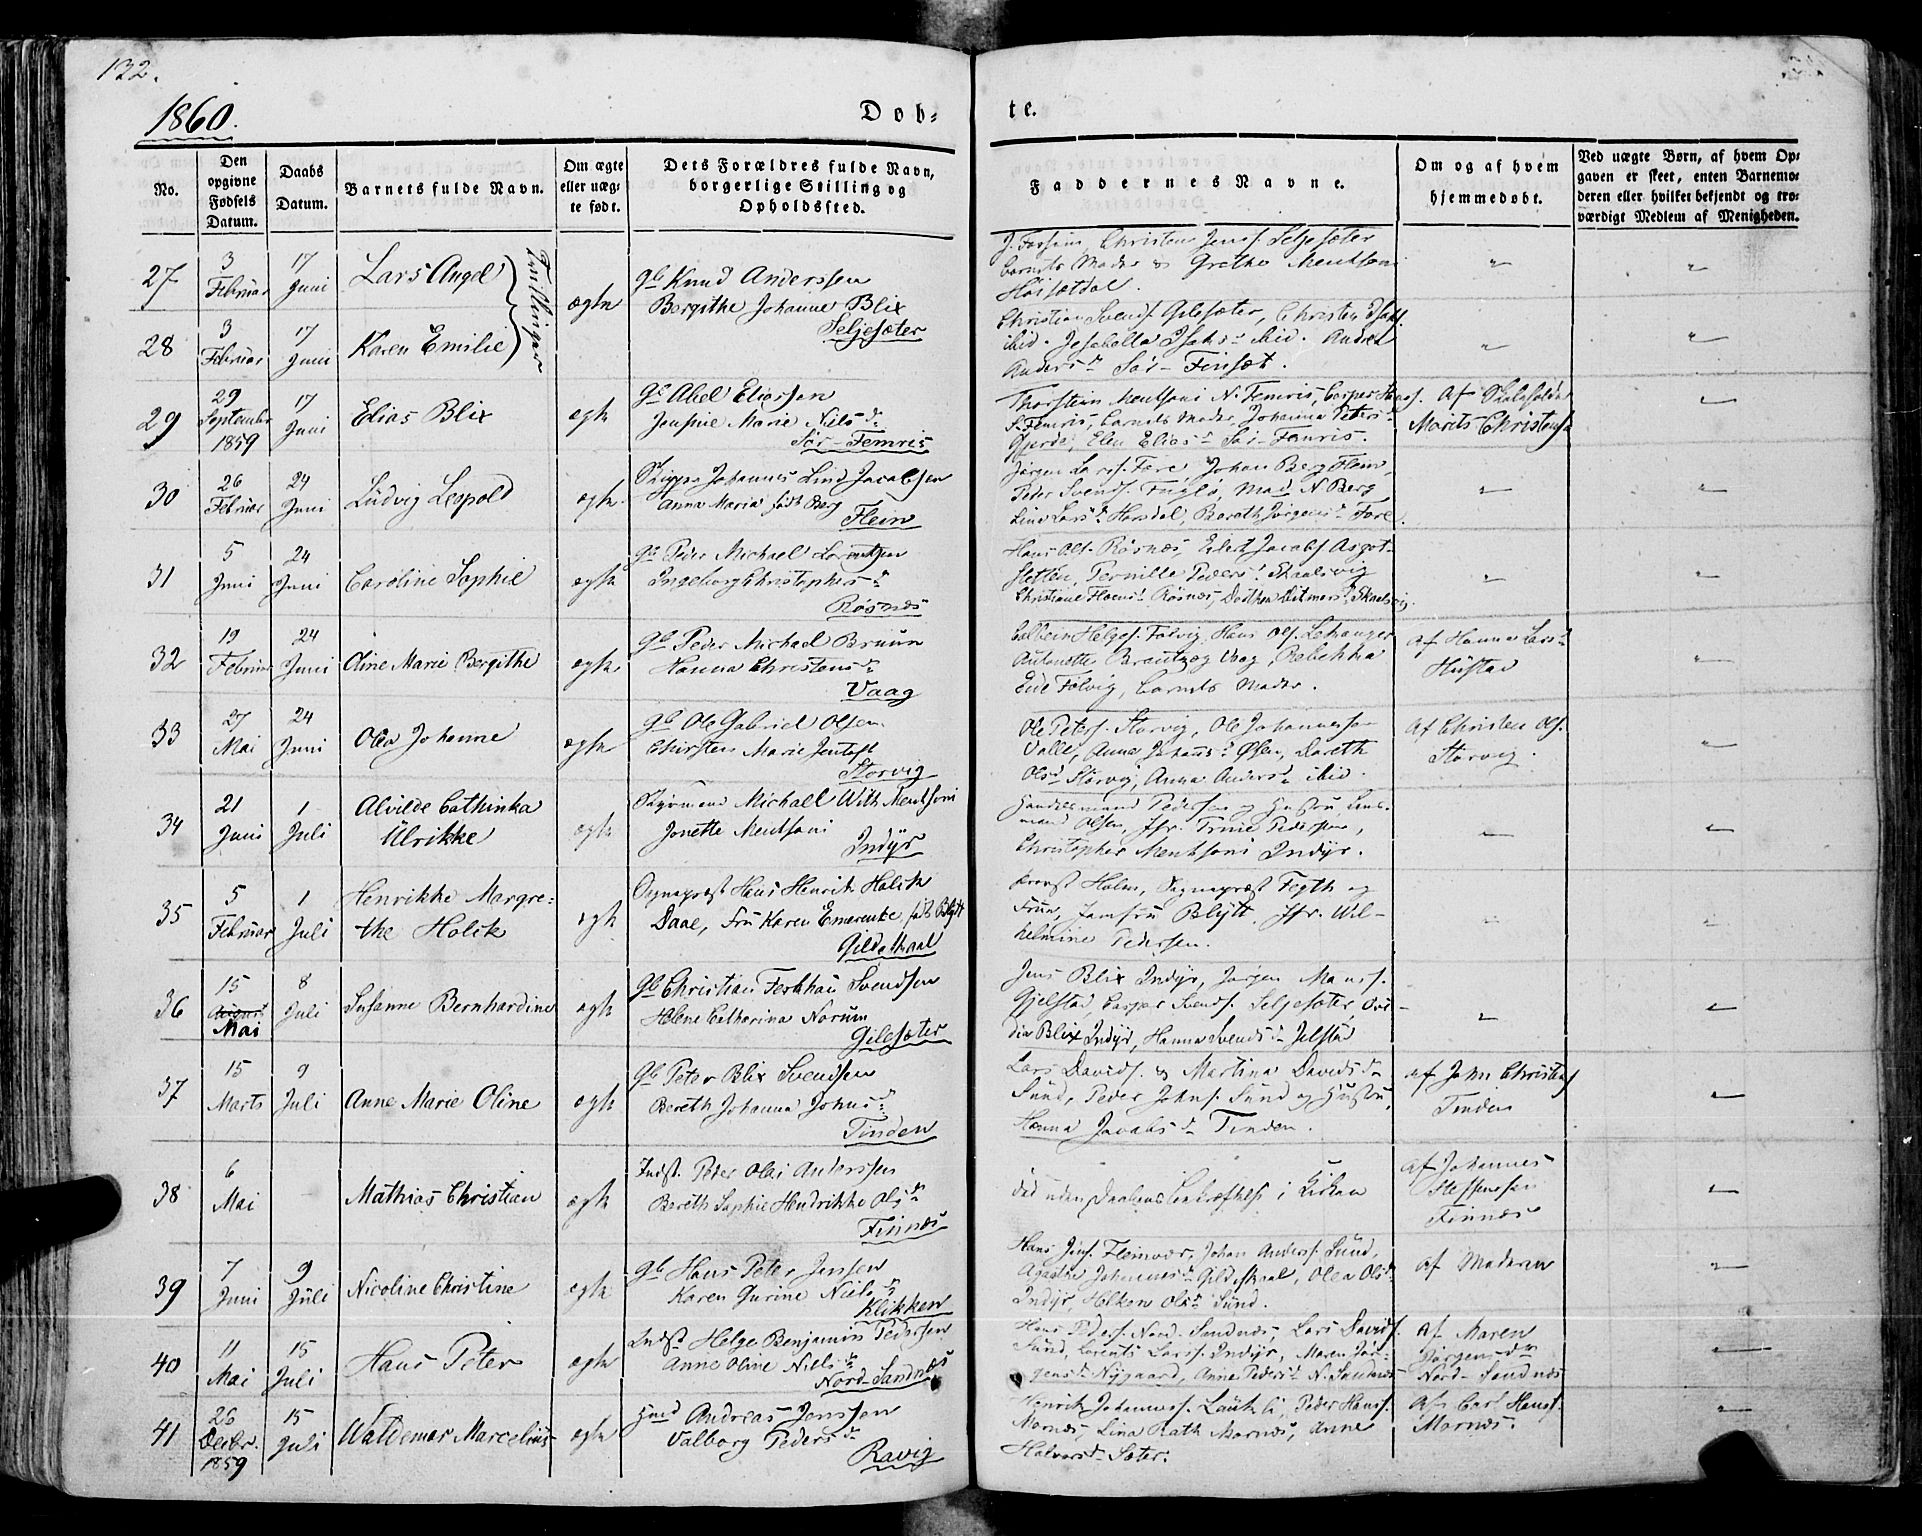 132.
1860.
Døb-
te.
No.
Den opgivne Fødsels Datum.
Daabs Datum.
Barnets fulde Navn.
Om ægte eller uæg-te født.
Dets Forældres fulde Navn, borgerlige Stilling og Opholdssted.
Faddernes Navne.
Om og af hvem hjemmedøbt.
Ved uægte Børn, af hvem Op-gaven er skeet, enten Barnemo-deren eller hvilket bekjendt og tro-værdigt Medlem af Menigheden.
27
3 Februar
17 Juni
Lars Angel
Tvillinger
ægte
Gb Knud Anderssen
Bergithe Johanne Blix
Seljesæter
Christen Jens. Seljesæter
Barnets Moder & Grethe Mentsoni
28
3 Februar
17 Juni
Karen Emilie
Christian Svends. Gilesæter, Christen
ibid. ibid. Andrea
Anders d. Sør-Finset.
29
29 September 1859
17 Juni
Elias Blix
ægte
Gb Abel Eliassen
Josphine Marie Niels d.
Sør-Femris
Thorstein Mentsoni N. Femris, Casper
S. Femris, Barnets Moder, Johanna Peters d.
Gjerde, Elen Elias d. Sør-Femris.
Af
Marits Christens
30
26 Februar
24 Juni
Ludvig Lepold
ægte
Johannes Lind Jacobsen
Anna Maria født Berg
Flein
Jørgen Lars. Fore Johan Berg Flein,
Peder Svends. Fuglø, Mad. N Berg
Line Lars d. Horsdal, Bereth Jørgens d. Fore.
31
5 Juni
24 Juni
Caroline Sophie
ægte
Gb Peder Michael Lorentsen
Ingeborg Christophers d.
Røsnæs
Hans Ols. Røsnæs, Eilert Jacobs. Asgot-
stetten, Pernille Peders d. Skaalsvig
Christiane Røsnæs,
32
19 Februar
24 Juni
Oline Marie Bergithe
ægte
Gb Peder Michael Bruun
Hanna Christens d.
Vaag
Helges. Følvig, Hans Ols.
Antonette Brantzeg Vaag, Rebekka
Eide Følvig, Barnets Moder.
af Hanna Lars d.
Hustad
33
27 Mai
24 Juni
Olea Johanne
ægte
Gb Ole Gabriel Olsen
Chirsten Marie Jentoft
Storvig
Ole Peters. Storvig, Ole Johannessen
Valle, Anne Johans d. Øsen, Bereth
Ols d. Storvig, Anna Anders d. ibid.
Af Christen Ols.
Storvig.
34
21 Juni
1 Juli
Alvilde Cathinka
Ulrikke
ægte
Michael With Mentsoni
Jonette Mentsoni
Indyr
Handelsmand Pedersen og Hustru, Lens-
mand Olsen, Jfr. Trine Pedersen,
Christopher Mentsoni Indyr.
35
5 Februar
1 Juli
Henrikke Margre-
the Holck
ægte
Sognepræst Hans Henrik Holck
Daae, Fru Karen Emerentse født Blytt
Gildeskaal
Provst Holm, Sognepræst Fegth og
Frue, Jomfru Blytt, Jfr. Wil-
helmine Pedersen.
36
15 August Mai
8 Juli
Susanne Bernhardine
ægte
Gb Christian Ferkhau Svendsen
Helene Catharina Norum
Gilesæter
Jens Blix Indyr, Jørgen Mons.
Gjelstad, Casper Svends. Seljesæter,
Blix Indyr, Hanna Svends d. Jelstad
37
15 Marts
9 Juli
Anne Marie Oline
ægte
Gb Peter Blix Svendsen
Bereth Johanna Johns d.
Tinden
Lars Davids. & Martina Davids d.
Sund, Peder Johns. Sund og Hustru,
Hanna Jacobs d. Tinden.
af John Christens.
Tinden
38
6 Mai
Mathias Christian
ægte
Indst. Peder Olai Anderssen
Bereth Sophie Hendrikke Ols d.
Finnæs
Død uden Daabens Bekræftelse i Kirken
af Johannes
Steffensen
Finnæs
39
7 Juni
9 Juli
Nicoline Christine
ægte
Gb Hans Peter Jensen
Karen Gurine Niels d.
Klikken
Hans Jens. Fleinvær, Johan Anders. Sund,
Agathe Johannes d. Gildeskaal, Olea Ols d.
Indyr, Ols d. Sund.
af Moderen
40
11 Mai
15 Juli
Hans Peter
ægte
Indst. Helge Benjamin Pedersen
Anne Oline Niels d.
Nord-Sandnæs
Hans Peders. Nord-Sandnæs, Lars Davids.
Sund, Lorents Larss. Indyr, Maren Jør-
gens d. Nygaard, Anne Peders d. N. Sandnæs
af Maren
Jørgens d.
Nord-Sandnæs
41
26 Decbr. 1859
15 Juli
Waldemar Marcelius
ægte
Hmd Andreas Jenssen
Valborg Peders d.
Ravig
Henrik Johanness. Peder Hans.
Mornæs, Lina Rath Mornæs, Anne
Halvors d. Sæter.
af Carl Hans.
Mornæs.